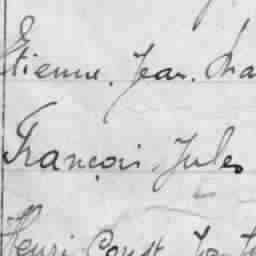 Etienne. Jean. Cha
François. Jules
Henri Const